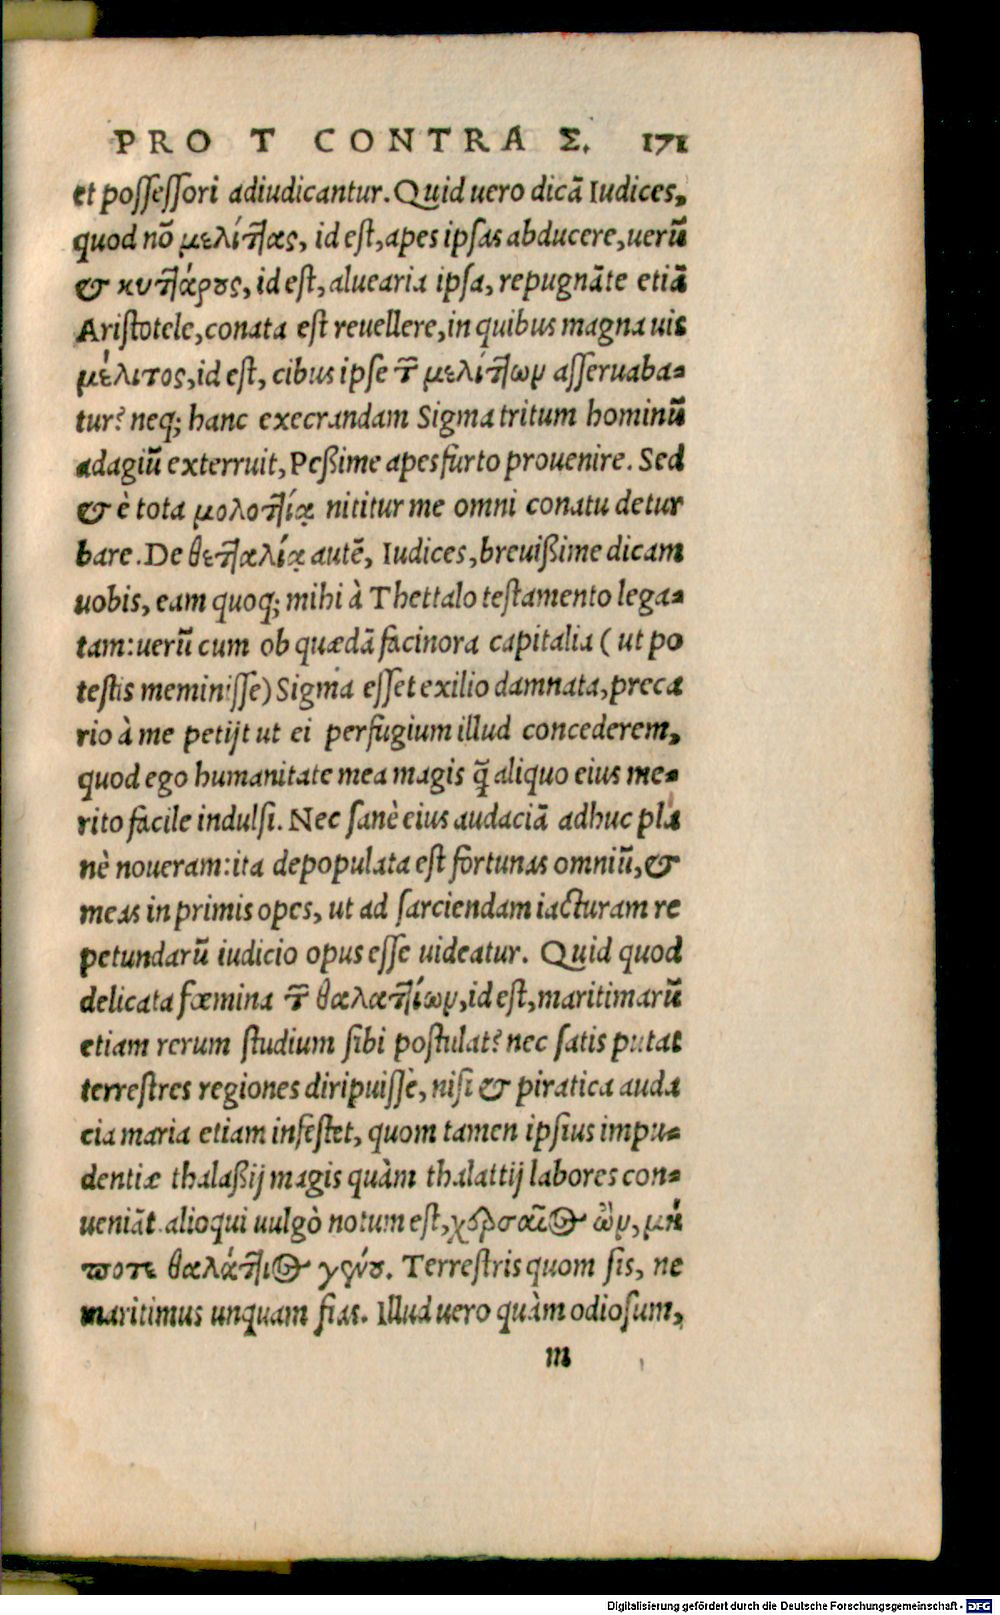 PRO T CONTRA Σ. 171
et possessori adiudicantur. Quid uero dicā Iudices,
quod nō μελίτ̃ας, id est, apes ipsas abducere, uerū
& κυτ̃άρȣς, id est, aluearia ipsa, repugnāte etiā
Aristotele, conata est reuellere, in quibus magna uis
μέλιτος, id est, cibus ipse τ̃ μελίτ̃ωμ asseruaba-
tur? neq; hanc execrandam Sigma tritum hominū
adagiū exterruit, Peßime apes furto prouenire. Sed
& è tota μολοτ̃ίᾳ nititur me omni conatu detur
bare. De θετ̃αλίᾳ autē, Iudices, breuißime dicam
uobis, eam quoq; mihi à Thettalo testamento lega-
tam: uerū cum ob quædā facinora capitalia ( ut po
testis meminisse) Sigma esset exilio damnata, preca
rio à me petijt ut ei perfugium illud concederem,
quod ego humanitate mea magis q̃ aliquo eius me-
rito facile indulsi. Nec sanè eius audaciā adhuc pla
nè noueram: ita depopulata est fortunas omniū, &
meas in primis opes, ut ad sarciendam iacturam re
petundarū iudicio opus esse uideatur. Quid quod
delicata fœmina τ̃ θαλατ̃ίωμ, id est, maritimarū
etiam rerum studium sibi postulat? nec satis putat
terrestres regiones diripuisse, nisi & piratica auda
cia maria etiam infestet, quom tamen ipsius impu-
dentiæ thalaßij magis quàm thalattij labores con-
ueniāt. alioqui uulgò notum est, χερσαῖος ὢμ, μή
ποτε θαλάτ̃ιος γένȣ. Terrestris quom sis, ne
maritimus unquam fias. Illud uero quàm odiosum,
m
Digitalisierung gefördert durch die Deutsche Forschungsgemeinschaft - DFG